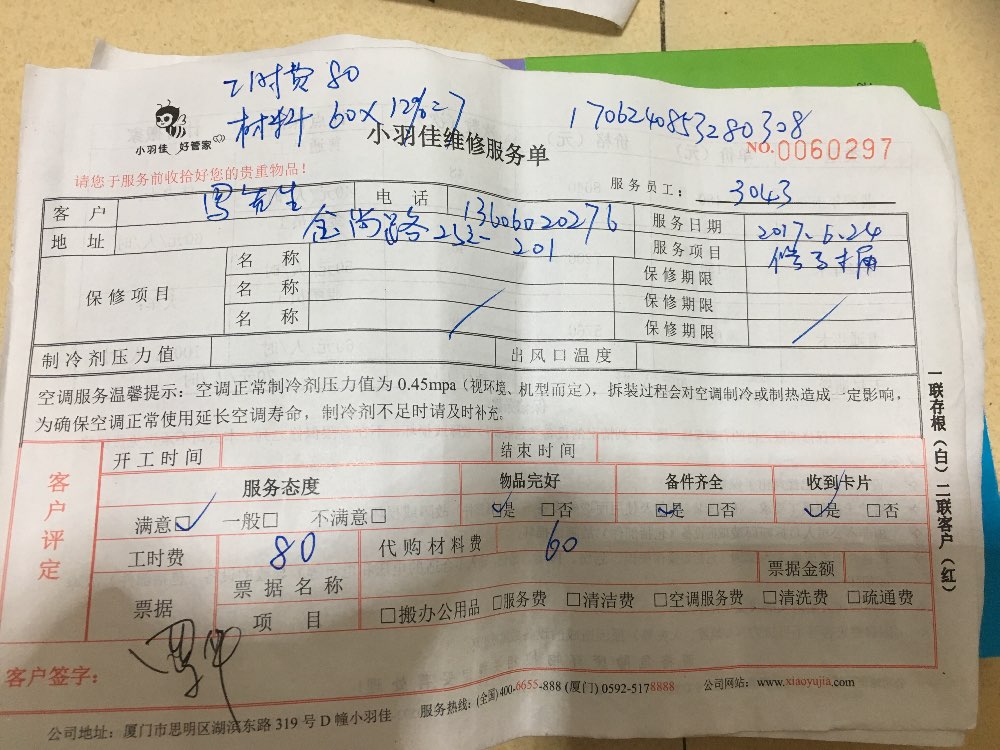 工时费 80
材料 60×12%=7
1706240853280308
小羽佳 好管家
小羽佳维修服务单
NO.0060297
请您于服务前收拾好您的贵重物品!
服务员工: 3043
客户 先生 电话 13606020276 服务日期 2017.6.24
地址 金尚路252-201 服务项目
保修项目
名称 保修期限
名称 保修期限
名称 保修期限
制冷剂压力值 出风口温度
空调服务温馨提示:空调正常制冷剂压力值为 0.45mpa(视环境、机型而定),拆装过程会对空调制冷或制热造成一定影响,
为确保空调正常使用延长空调寿命,制冷剂不足时请及时补充。
客户评定
开工时间 结束时间
服务态度 物品完好 备件齐全 收到卡片
满意☑ 一般□ 不满意□ ☑是 □否 ☑是 □否 ☑是 □否
工时费 80 代购材料费 60
票据 票据名称 票据金额
项目 □搬办公用品 □服务费 □清洁费 □空调服务费 □清洗费 □疏通费
客户签字:
公司地址:厦门市思明区湖滨东路 319 号 D 幢小羽佳 服务热线:(全国)400-6655-888 (厦门) 0592-5178888 公司网站:www.xiaoyujia.com
一联存根(白)二联客户(红)